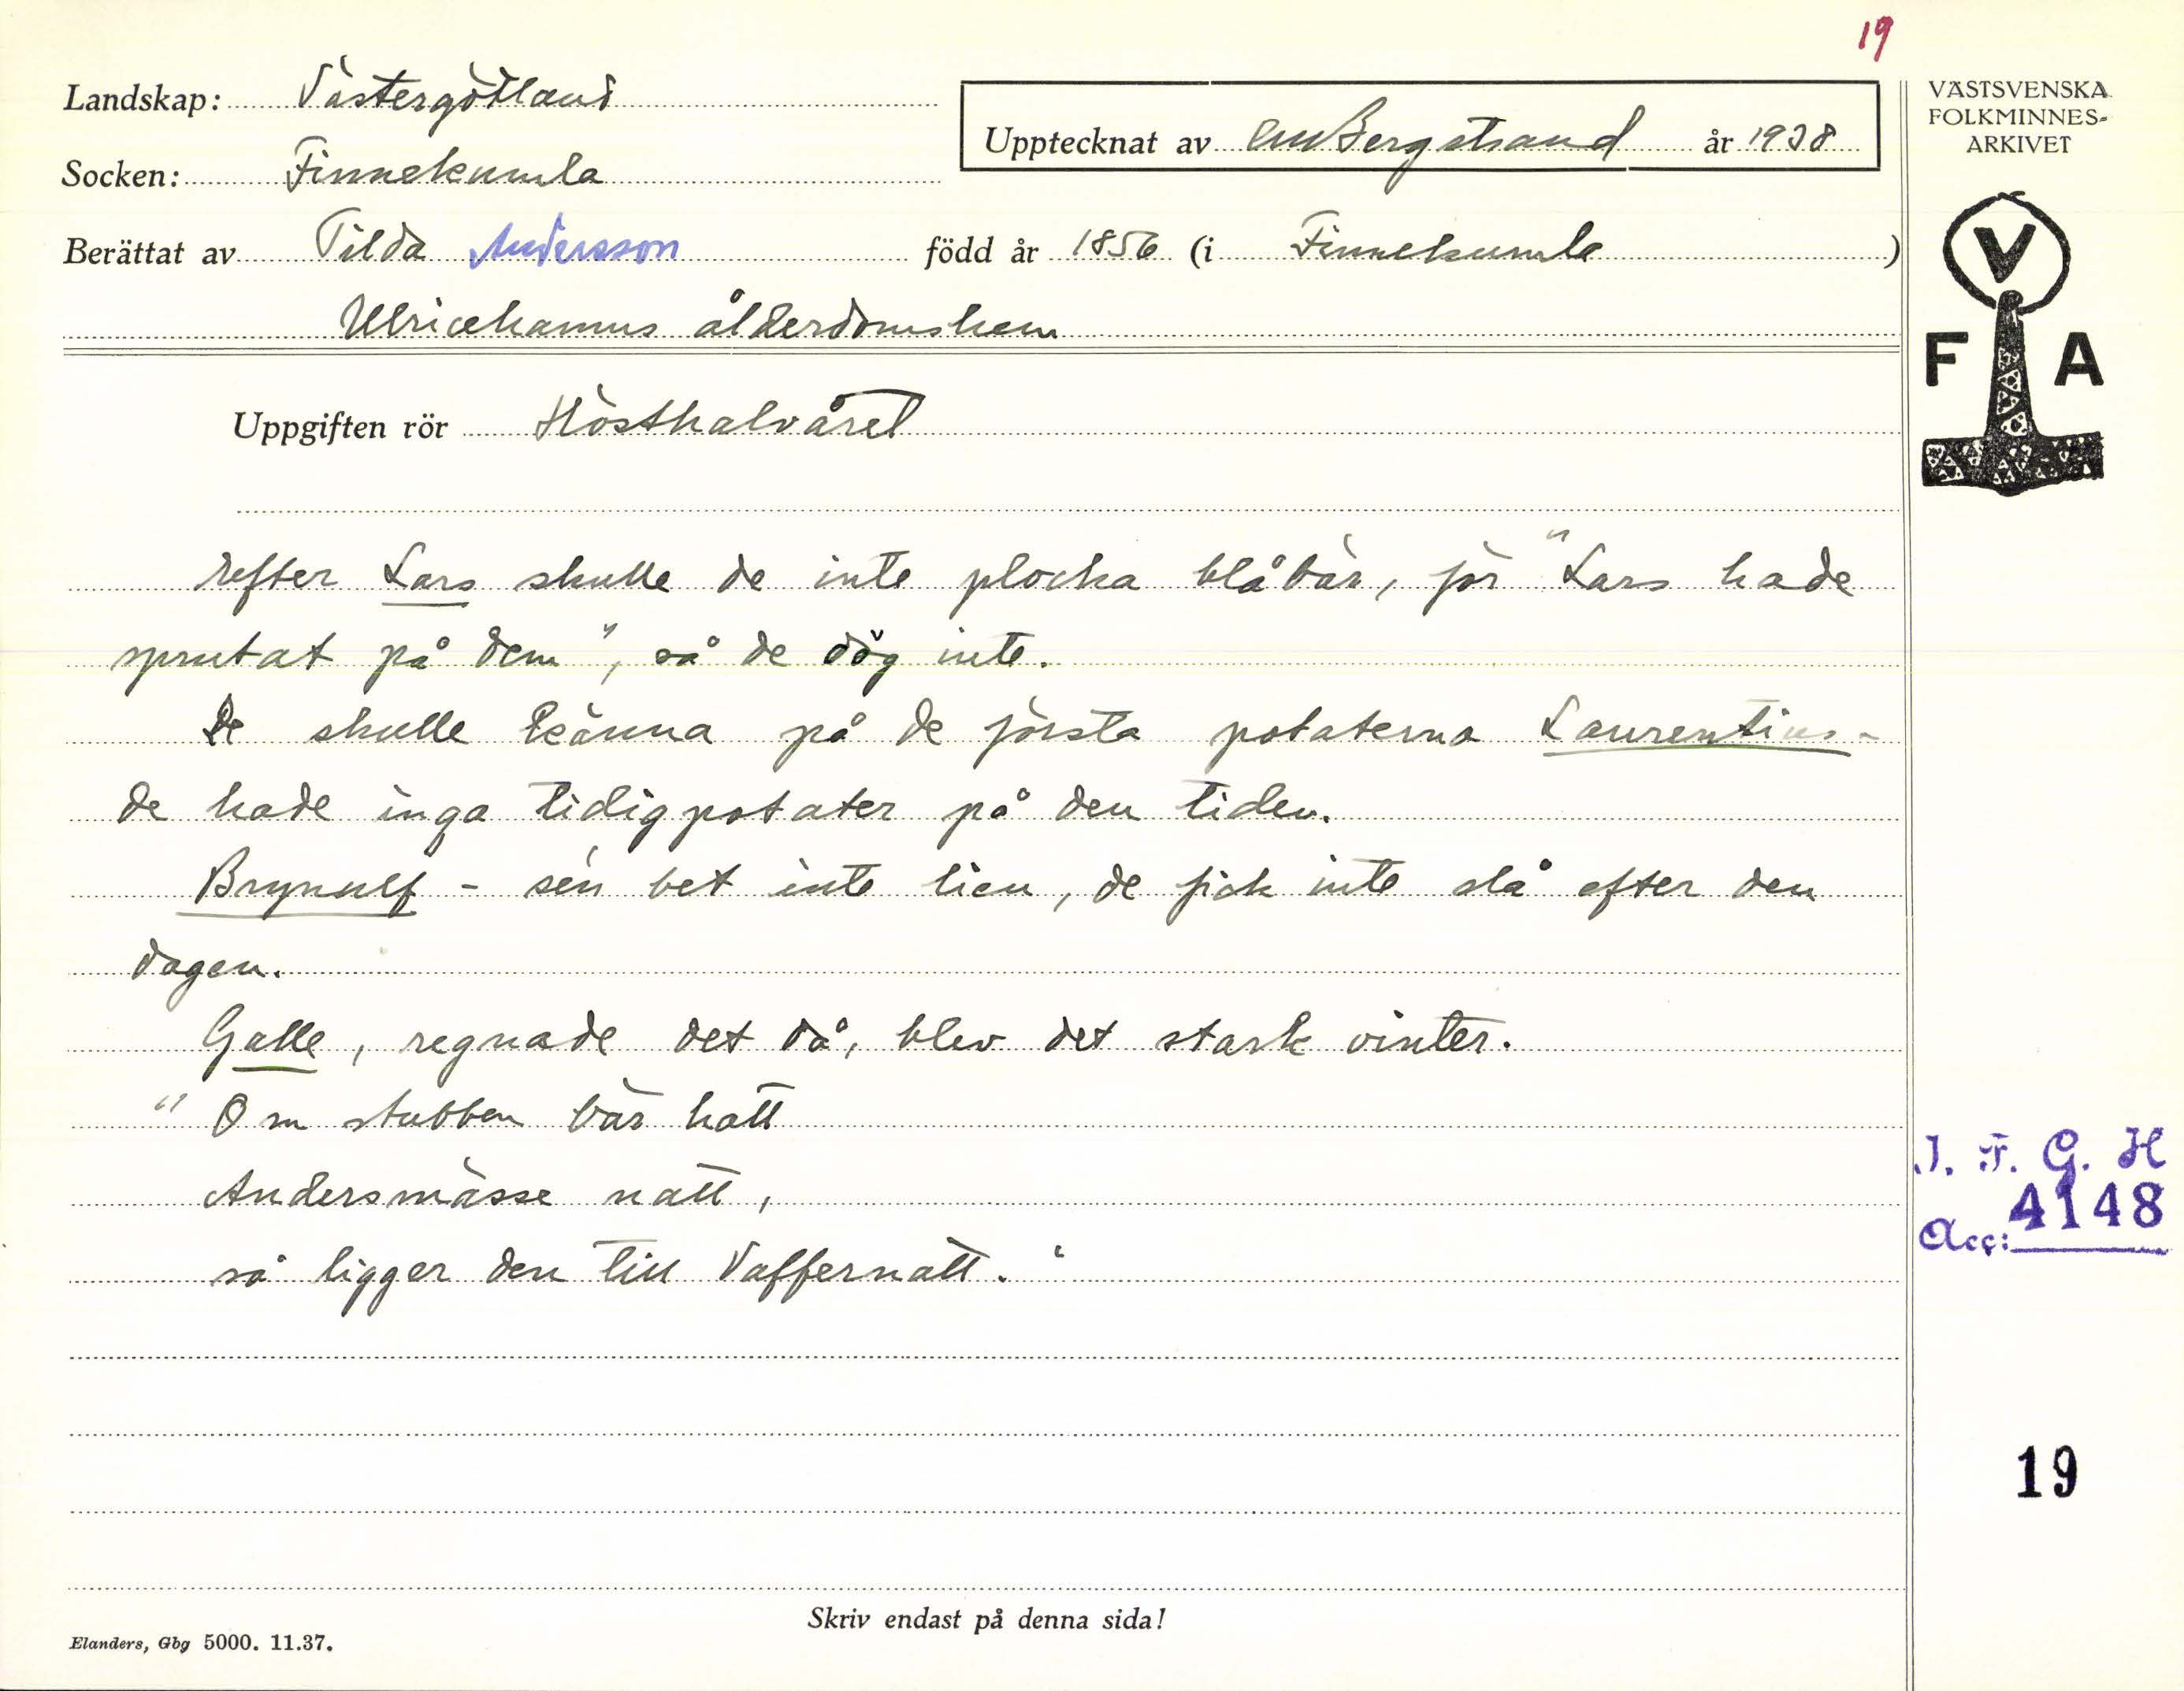 19
Landskap: Västergötland
Upptecknat av CM Bergstrand år 1938
Socken: Finnekumla
Berättat av Tilda Andersson född år 1856 (i Finnekumla)
Ulricehamns ålderdomshem
Uppgiften rör Hösthalvåret
Efter Lars skulle de inte plocka blåbär, för "Lars hade
sprutat på dem", så de dög inte.
De skulle känna på de första potaterna Laurentius -
de hade inga tidigpotater på den tiden.
Brynulf - sen bet inte lien, de fick inte slå efter den
dagen.
Galle, regnade det då, blev det stark vinter.
"Om stubben bär hatt
Andersmässe natt,
så ligger den till Vaffernatt."
Skriv endast på denna sida!
Elanders, Gbg 5000. 11.37.
VÄSTSVENSKA
FOLKMINNES-
ARKIVET
V
F A
I. F. G. H
Acc: 4148
19